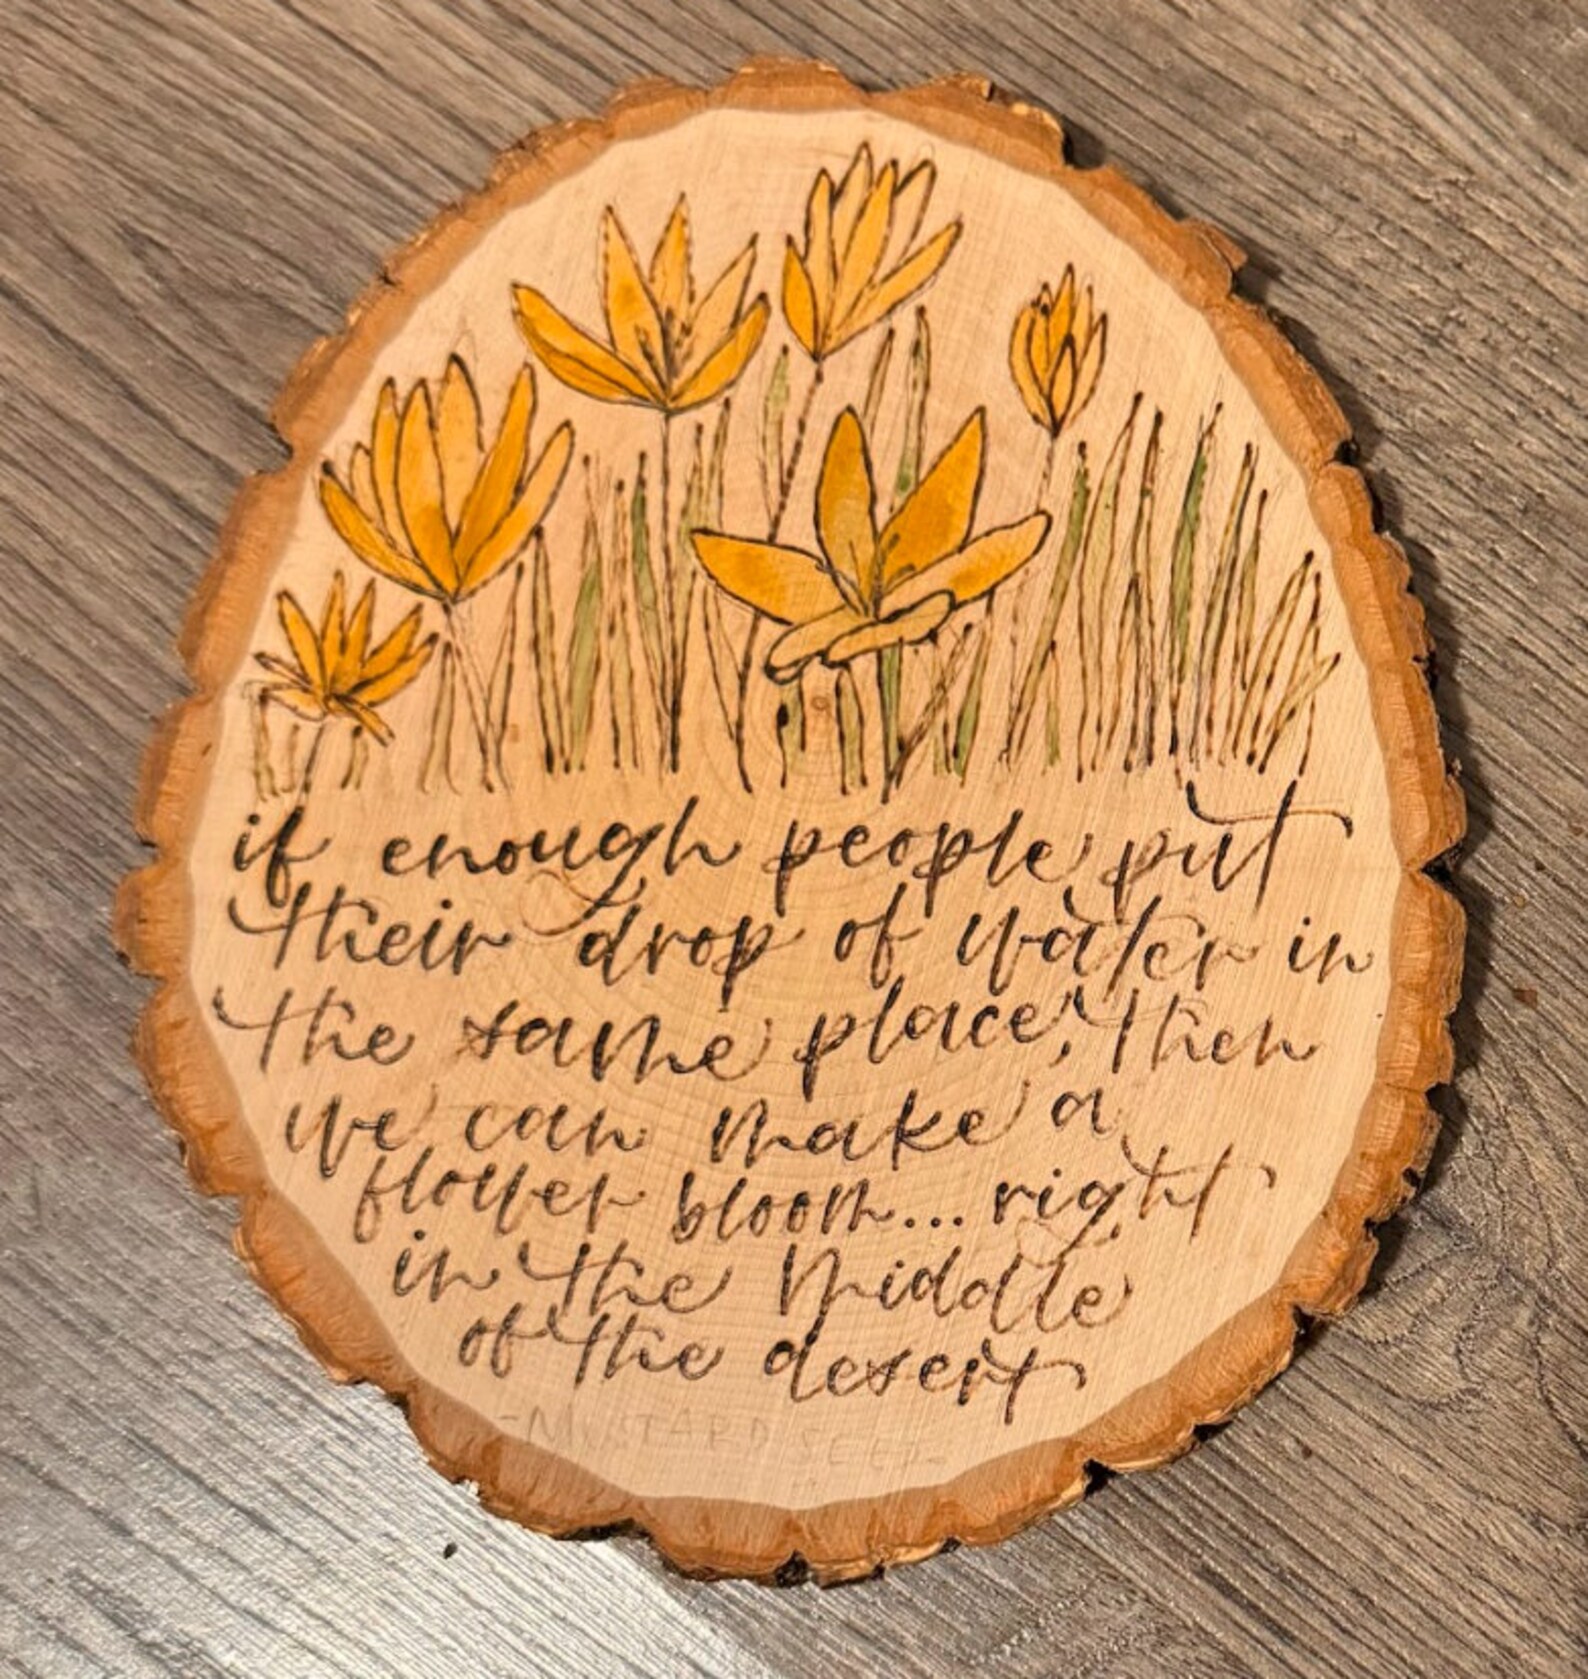 if enough people put
their drop of water in
the same place, then
we can make a
flower bloom... right
in the middle
of the desert
- MUSTARD SEED